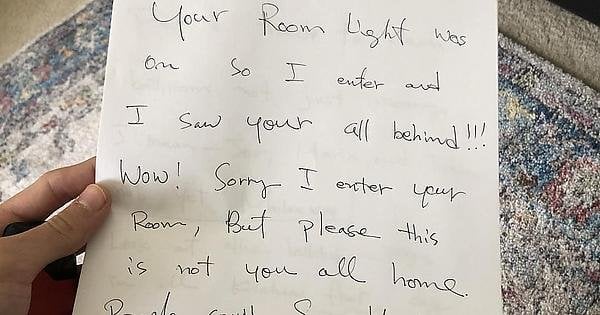 Your Room Light was
on so I enter and
I saw your all behind!!!
Wow! Sorry I enter your
Room, But please this
is not you all home.